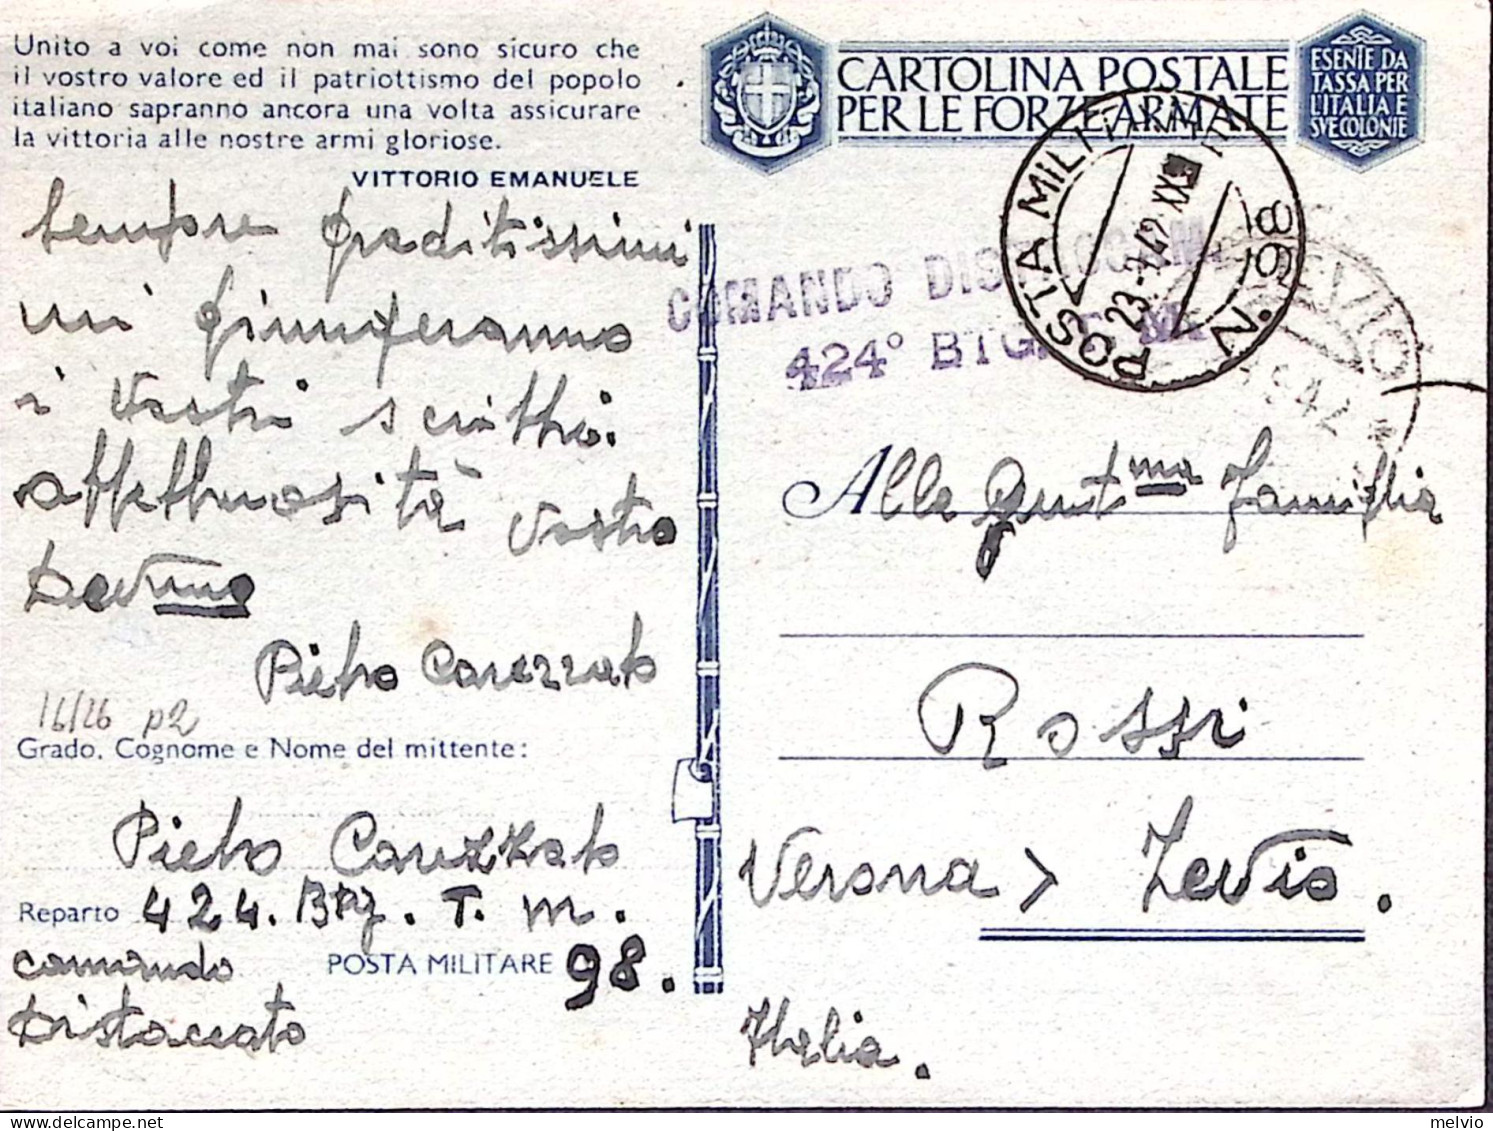 Unito a voi come non mai sono sicuro che
il vostro valore ed il patriottismo del popolo
italiano sapranno ancora una volta assicurare
la vittoria alle nostre armi gloriose.
VITTORIO EMANUELE
Sempre graditissimi
mi giungeranno
i Vostri scritti.
affettuosità Vostro
Dev.mo
Pietro Carezzato
16/26 p2
Grado, Cognome e Nome del mittente:
Pietro Carezzato
Reparto 424. Btg. T. m.
comando POSTA MILITARE 98.
Distaccato
CARTOLINA POSTALE
PER LE FORZE ARMATE
ESENTE DA
TASSA PER
L'ITALIA E
SVE COLONIE
POSTA MILITARE N. 98
23-7-42 XX
COMANDO
424° BTG. T. M.
ZEVIO
Alla Gent.ma Famiglia
Rossi
Verona > Zevio.
Italia.
melvio